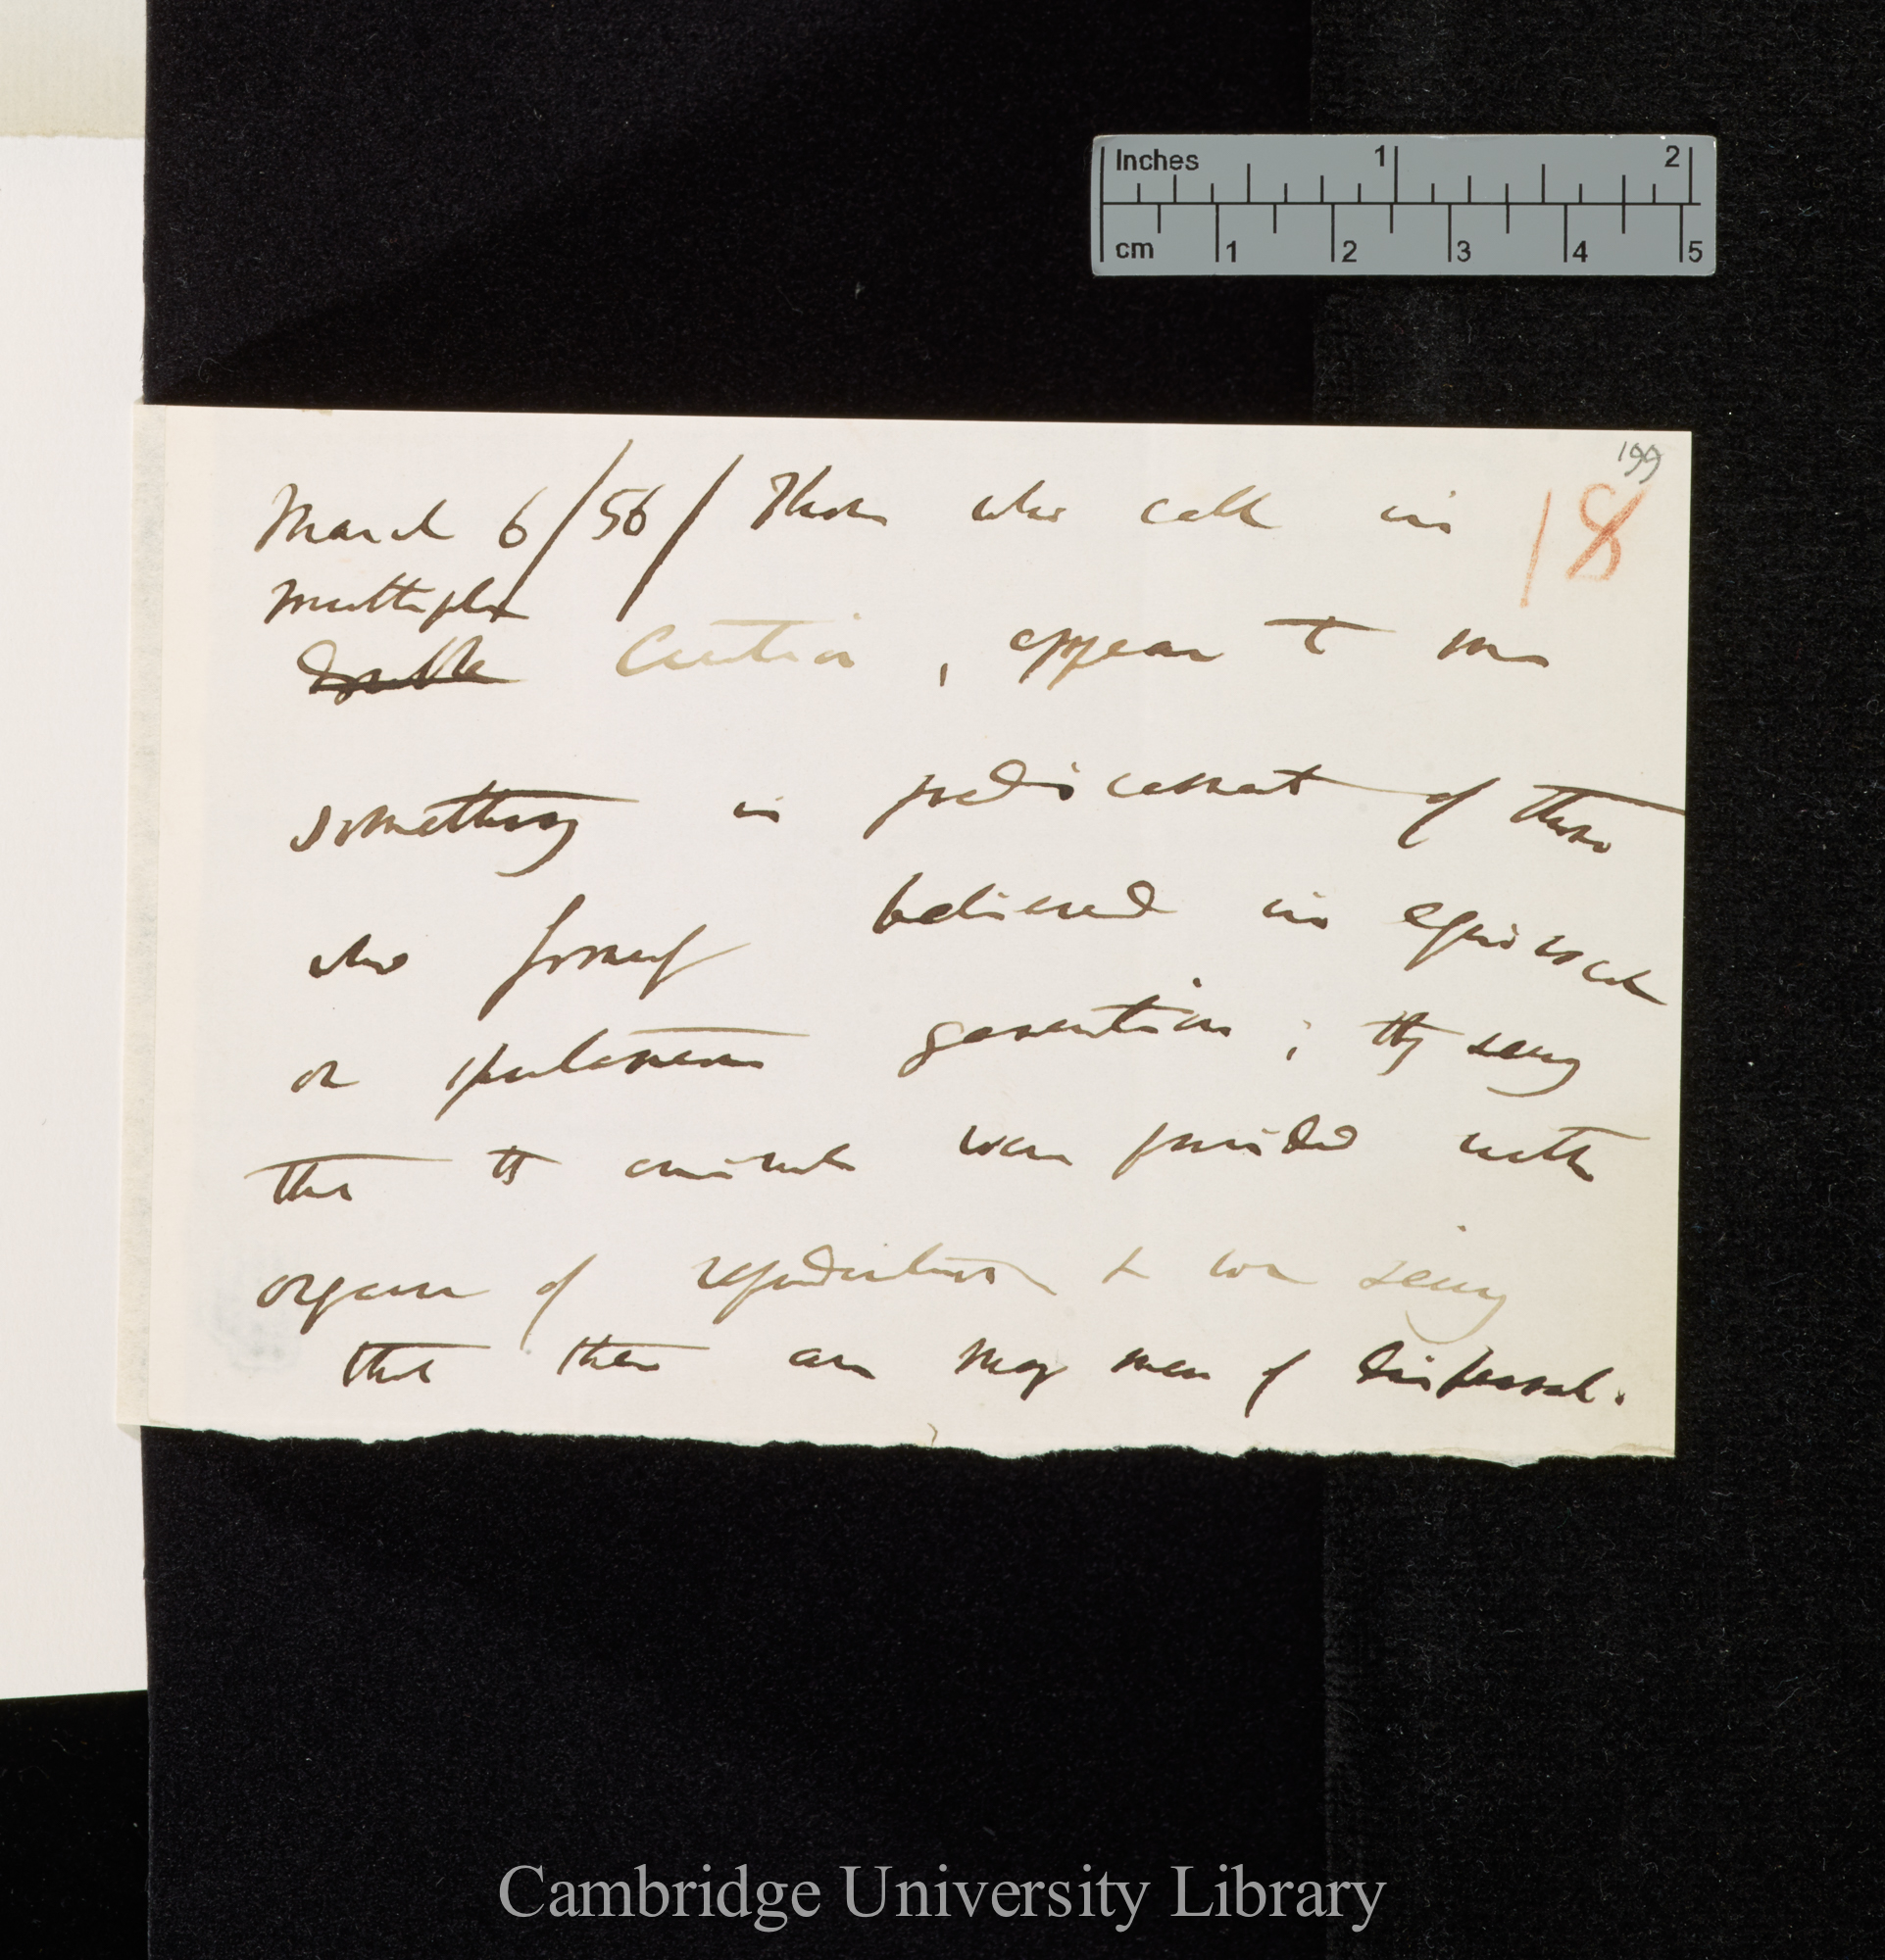 Inches 1 2
cm 1 2 3 4 5
199
18
March 6/56/ Those who call in
multiple
double Creation, appear to me
something in predicament of those
who formerly believed in equivocal
or spontaneous generation; they seeing
that the animals were provided with
organs of reproduction & we seeing
that there are many means of dispersal.
Cambridge University Library